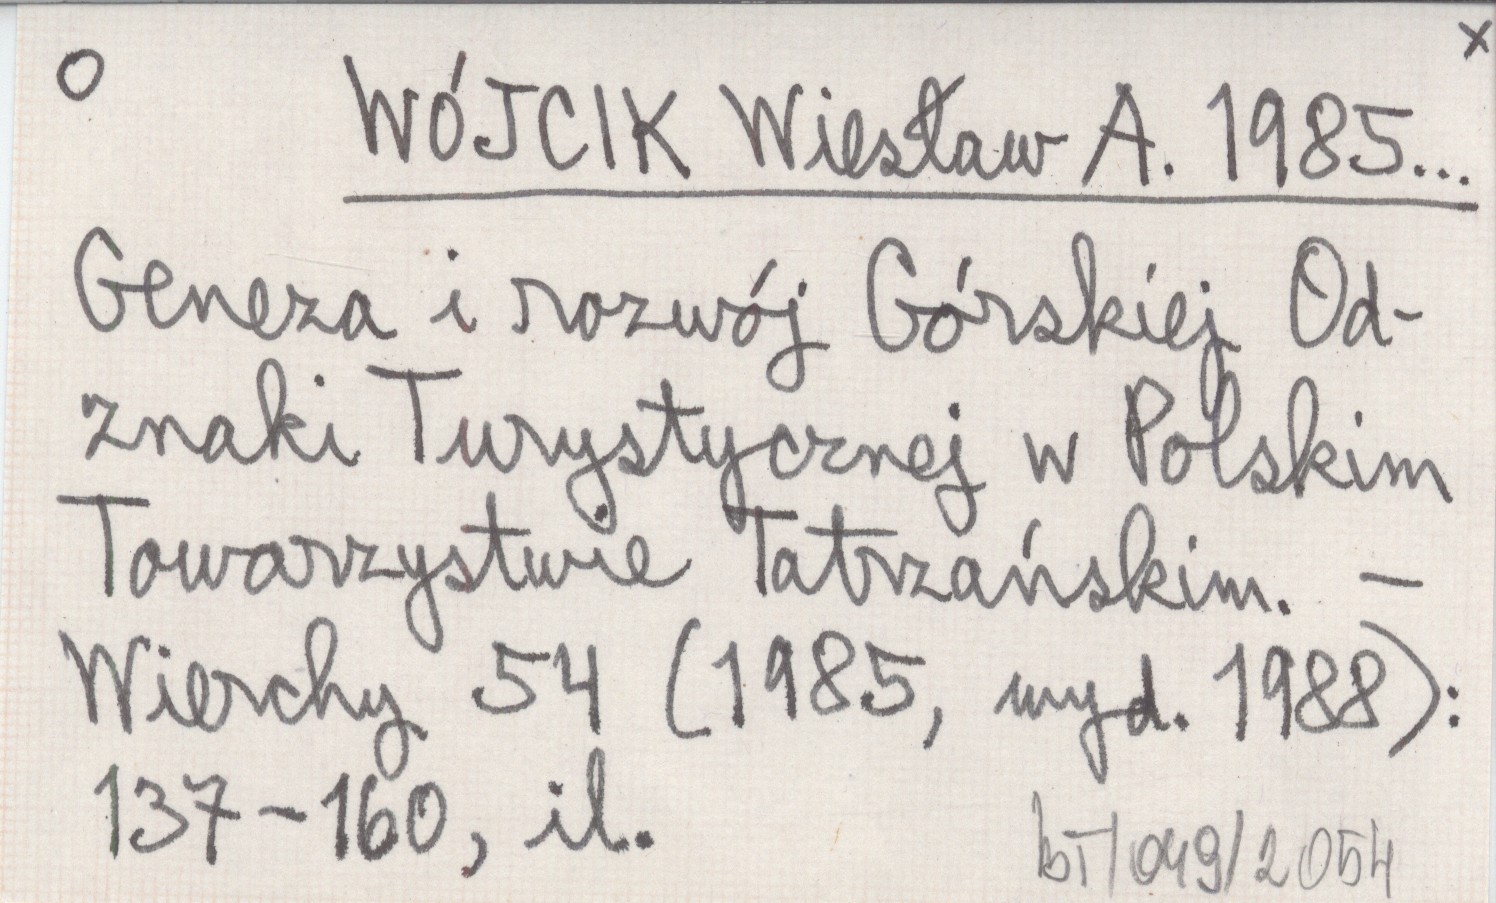 O x
WÓJCIK Wiesław A. 1985...
Geneza i rozwój Górskiej Od-
znaki Turystycznej w Polskim
Towarzystwie Tatrzańskim. —
Wierchy 54 (1985, wyd. 1988):
137-160, il.
bT/049/2054